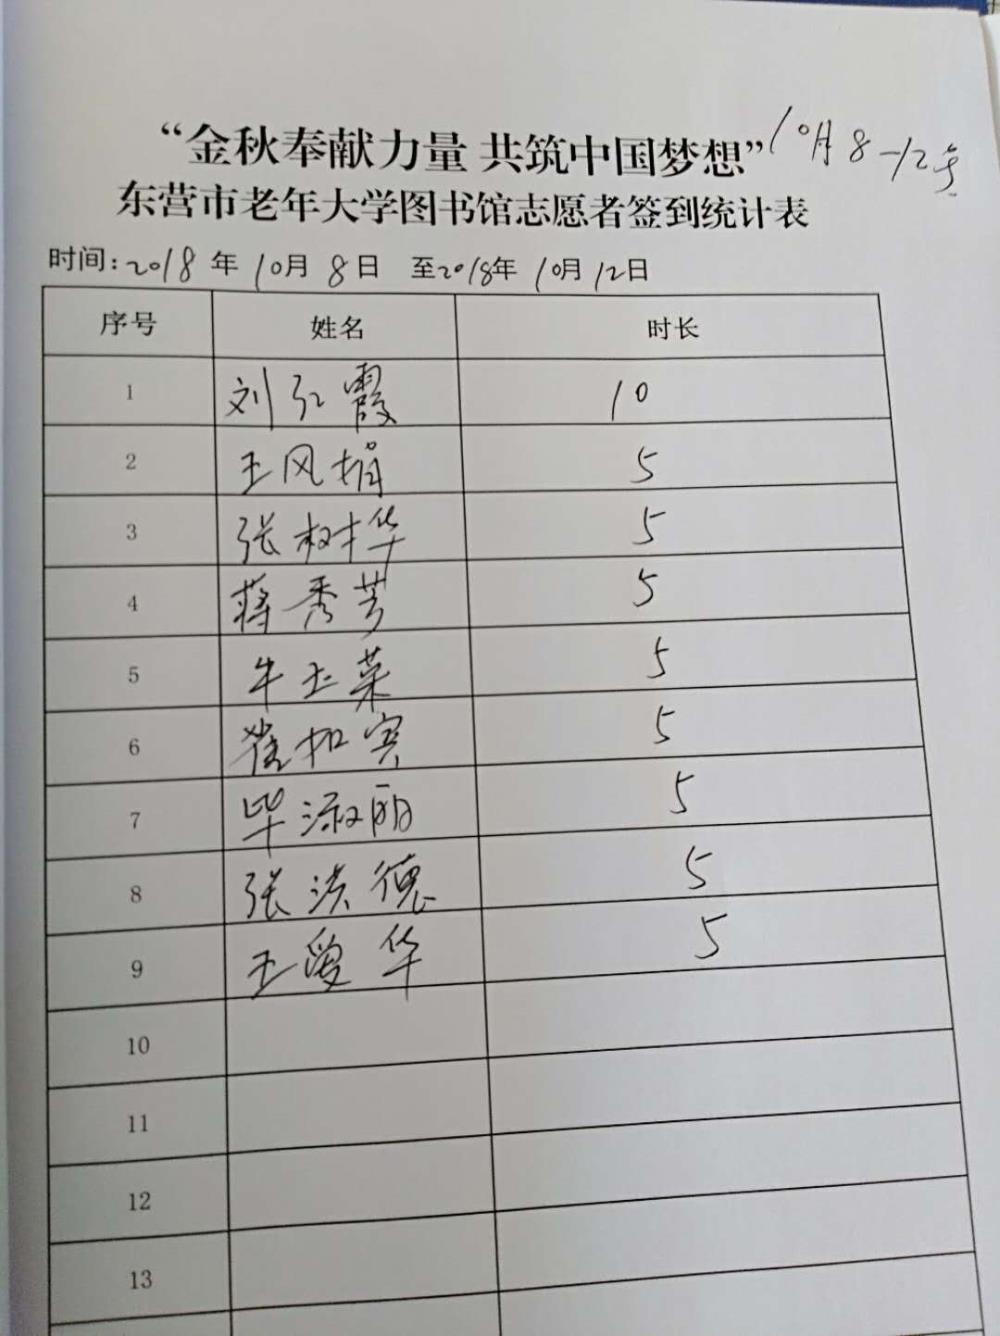 “金秋奉献力量 共筑中国梦想” 10月8-12号
东营市老年大学图书馆志愿者签到统计表
时间:2018年10月8日 至2018年10月12日
序号 姓名 时长
1 刘红霞 10
2 王风娟 5
3 张树华 5
4 蒋秀芳 5
5 牛玉菜 5
6 崔和宾 5
7 毕淑丽 5
8 张洪德 5
9 王爱华 5
10
11
12
13